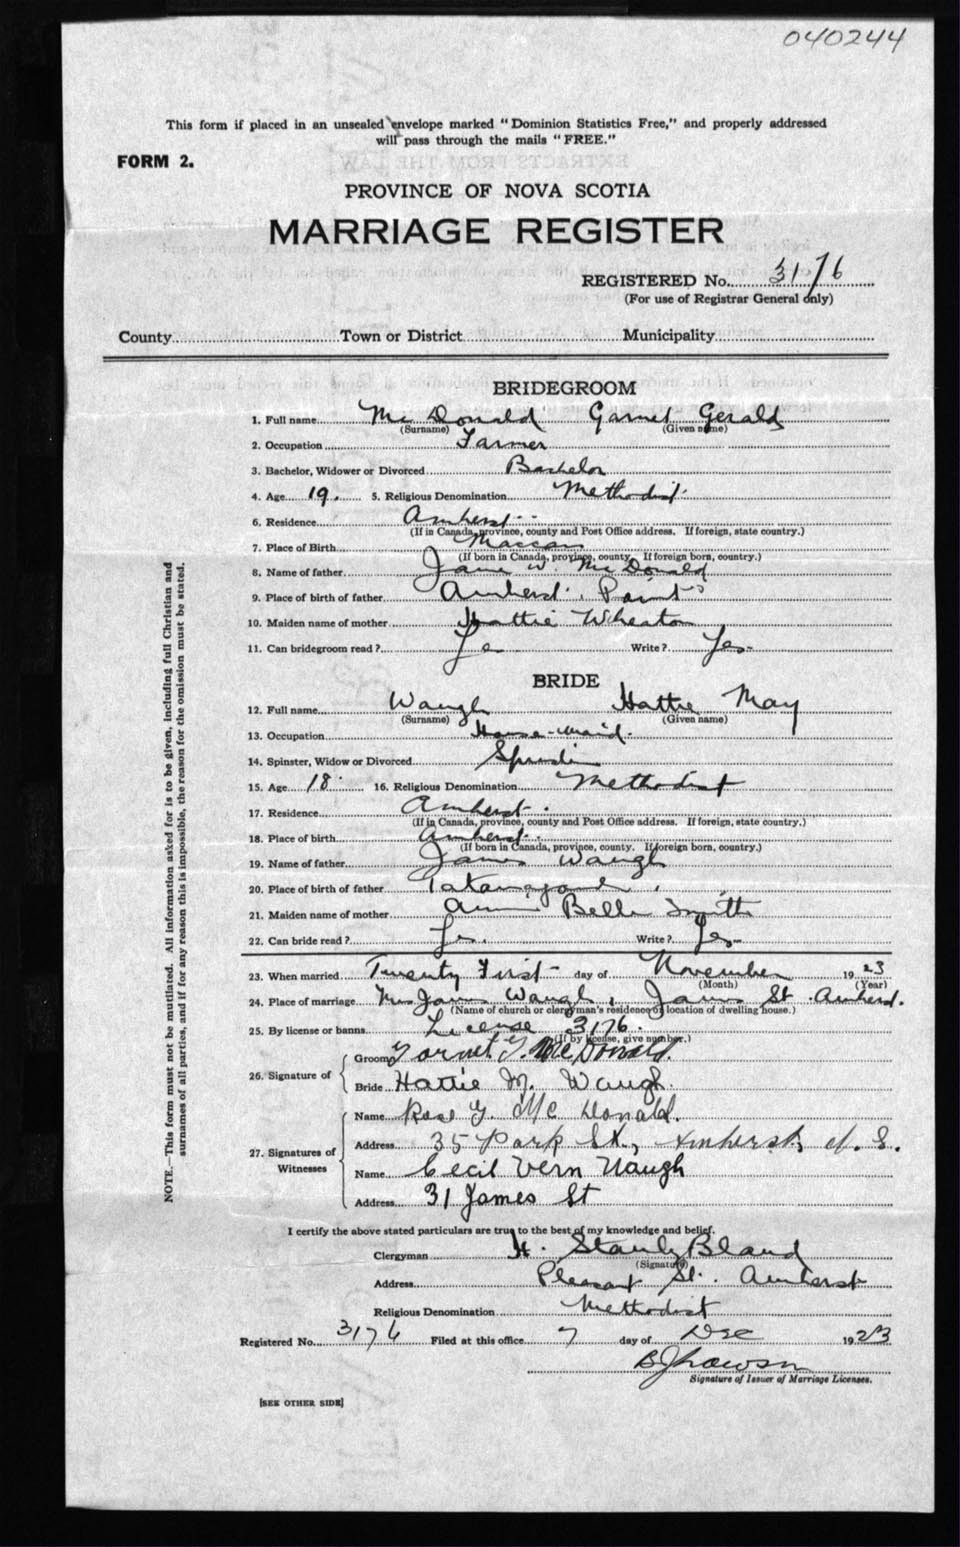 040244
This form if placed in an unsealed envelope marked "Dominion Statistics Free," and properly addressed
will pass through the mails "FREE."
FORM 2.
PROVINCE OF NOVA SCOTIA
MARRIAGE REGISTER
REGISTERED No. 3176
(For use of Registrar General only)
County Town or District Municipality
BRIDEGROOM
1. Full name Mc Donald Garnet Gerald
(Surname) (Given name)
2. Occupation Farmer
3. Bachelor, Widower or Divorced Bachelor
4. Age 19. 5. Religious Denomination Methodist.
6. Residence Amherst.
(If in Canada, province, county and Post Office address. If foreign, state country.)
7. Place of Birth Maccan
(If born in Canada, province, county. If foreign born, country.)
8. Name of father W. McDonald
9. Place of birth of father Amherst Point
10. Maiden name of mother Hattie Wheaton
11. Can bridegroom read? Yes Write? Yes
BRIDE
12. Full name Waugh Hattie May
(Surname) (Given name)
13. Occupation House-maid.
14. Spinster, Widow or Divorced Spinster
15. Age 18. 16. Religious Denomination Methodist
17. Residence Amherst.
(If in Canada, province, county and Post Office address. If foreign, state country.)
18. Place of birth Amherst.
(If born in Canada, province, county. If foreign born, country.)
19. Name of father James Waugh
20. Place of birth of father
21. Maiden name of mother Belle Smith
22. Can bride read? Yes. Write? Yes
23. When married Twenty First day of November 1923
(Month) (Year)
24. Place of marriage Mrs James Waugh, James St. Amherst.
(Name of church or clergyman's residence or location of dwelling house.)
25. By license or banns License 3176.
(If by license, give number.)
26. Signature of
Groom Garnet G. McDonald.
Bride Hattie M. Waugh.
27. Signatures of Witnesses
Name Rose G. McDonald.
Address 35 Park St., Amherst, N. S.
Name Cecil Vern Waugh
Address 31 James St
I certify the above stated particulars are true to the best of my knowledge and belief.
Clergyman H. Stanly Bland
(Signature)
Address Pleasant St. Amherst
Religious Denomination Methodist
Registered No. 3176 Filed at this office 7 day of Dec 1923
Signature of Issuer of Marriage Licenses.
[SEE OTHER SIDE]
NOTE.—This form must not be mutilated. All information asked for is to be given, including full Christian and
surnames of all parties, and if for any reason this is impossible, the reason for the omission must be stated.